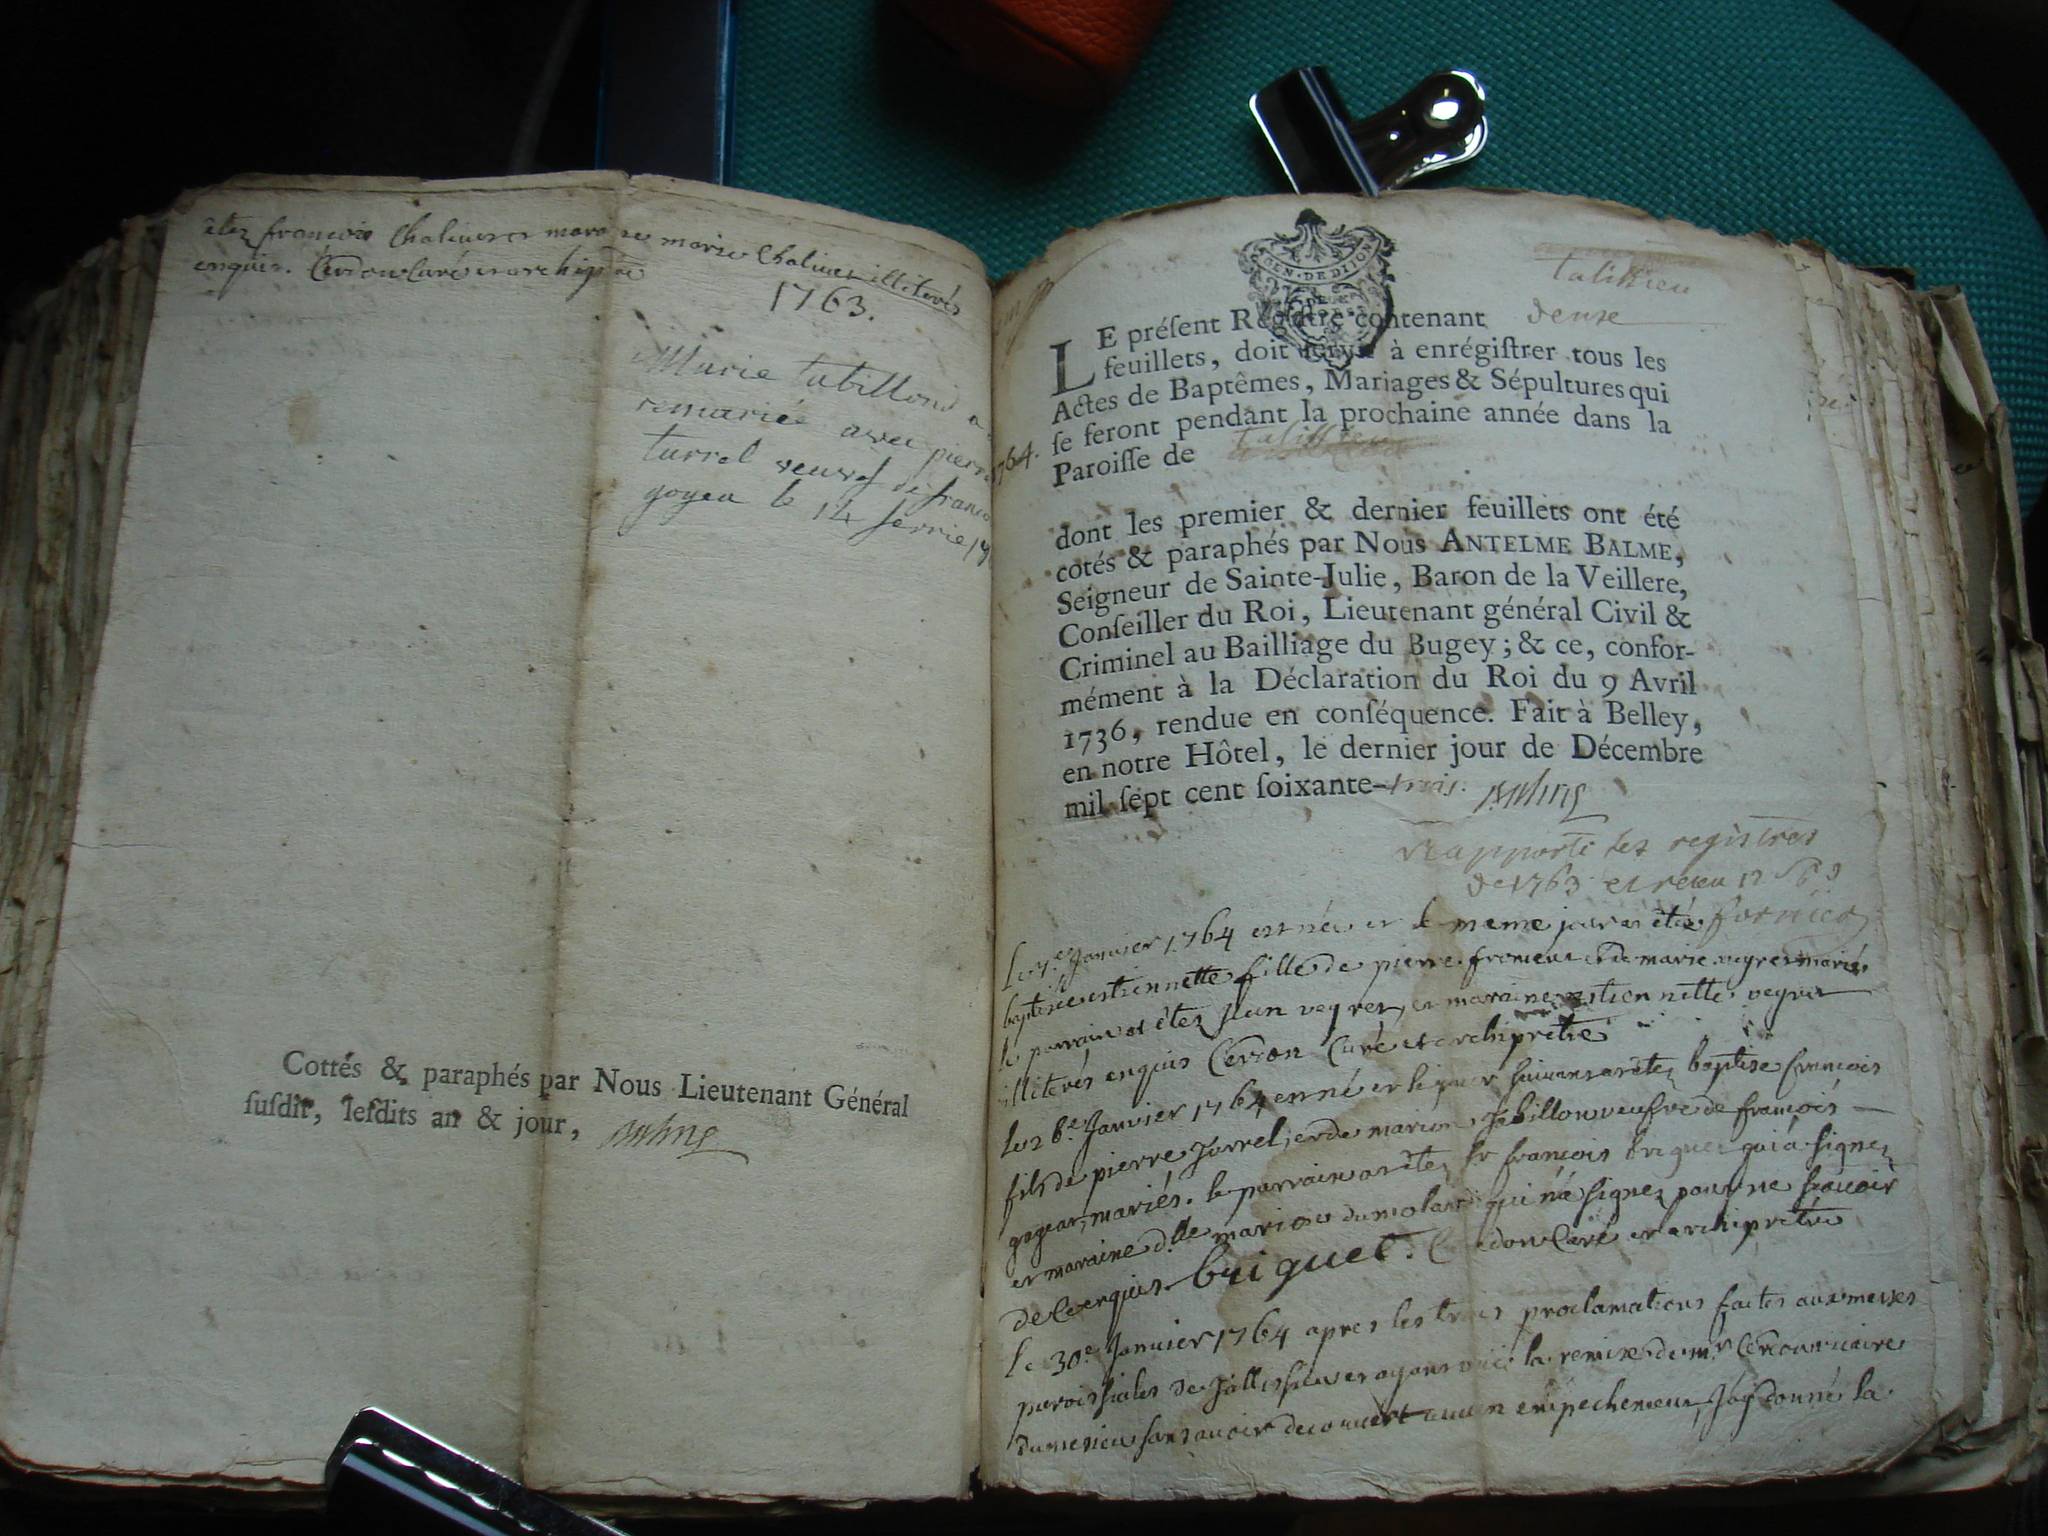 étez francois Chaliuer et marai ne marie Chaliuer illiterés
enquis. Cerdon Curé et archiprêtre
1763.
Marie tabillond a
remariée avec pierre
turrel veuve de franco
goyea le 14 fevrie
Cottés & paraphés par Nous Lieutenant Général
ſuſdit, leſdits an & jour,
GEN·DE DIJON
talissieu
1764.
LE préſent Regiſtre contenant douze
feuillets, doit ſervir à enrégiſtrer tous les
Actes de Baptêmes, Mariages & Sépultures qui
ſe feront pendant la prochaine année dans la
Paroiſſe de talissieu
dont les premier & dernier feuillets ont été
cotés & paraphés par Nous ANTELME BALME,
Seigneur de Sainte-Julie, Baron de la Veillere,
Conſeiller du Roi, Lieutenant général Civil &
Criminel au Bailliage du Bugey; & ce, confor-
mément à la Déclaration du Roi du 9 Avril
1736, rendue en conſéquence. Fait à Belley,
en notre Hôtel, le dernier jour de Décembre
mil ſept cent ſoixante-trois.
Rapporté les registres
de 1763 et receu
Le 7.e Janvier 1764 est née et le meme jour a étée
baptisée estiennette fille de pierre froment et de marie veyret mariés
le parrain a étez Jean veyret, et maraine estiennette veyret
illiterés enquis Cerdon Curé et archiprêtre
le 28.e Janvier 1764 est né et le jour suivant a étez baptisé francois
fils de pierre Turrel, et de marion Tabillon veufve de francois
gogear, mariés. le parrain a étez Sr francois briguet qui a signez
et maraine d.lle marion dumolard qui n'a signez pour ne scavoir
de ce enquis. briguet. Cerdon Curé et archiprêtre
le 30.e Janvier 1764 apres les trois proclamations faites aux messes
paroissiales de Tallissieu et ayant vue la remise de mr Cerdon vicaire
sans avoir decouvert aucun empechement, J'ay donné la